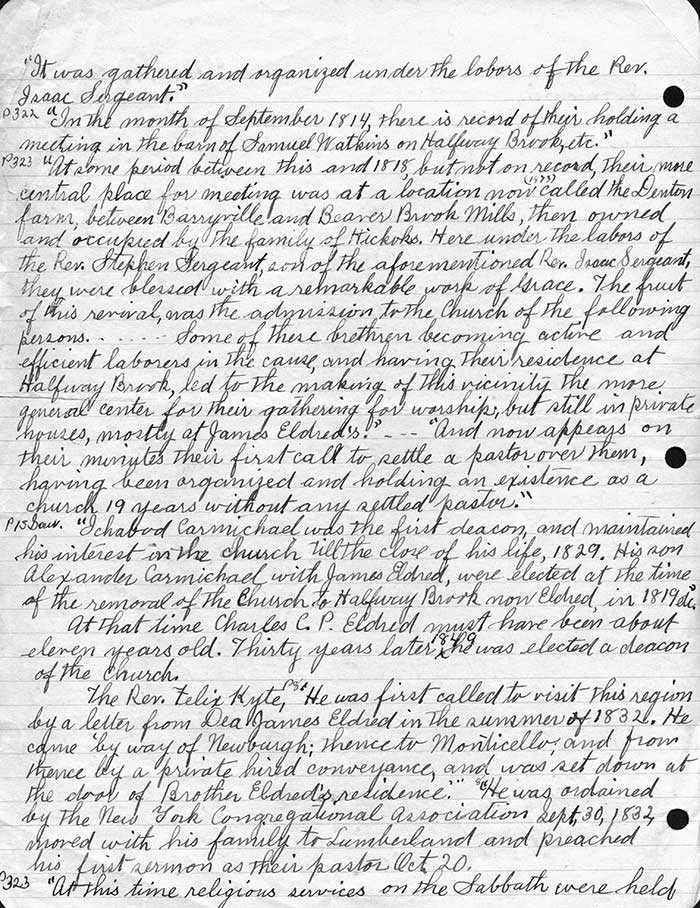 "It was gathered and organized under the labors of the Rev.
Isaac Sergeant."
P322 "In the month of September 1814, there is record of their holding a
meeting in the barn of Samuel Watkins on Halfway Brook, etc."
P323 "At some period between this and 1818, but not on record, their more
central place for meeting was at a location now (1873) called the Denton
farm, between Barryville and Beaver Brook Mills, then owned
and occupied by the family of Hickoks. Here under the labors of
the Rev. Stephen Sergeant, son of the aforementioned Rev. Isaac Sergeant,
they were blessed with a remarkable work of Grace. The fruit
of this revival, was the admission, to the Church of the following
persons. . . . . . . Some of these brethren becoming active and
efficient laborers in the cause, and having their residence at
Halfway Brook, led to the making of this vicinity the more
general center for their gathering for worship, but still in private
houses, mostly at James Eldred's." - - - "And now appears on
their minutes their first call to settle a pastor over them,
having been organized and holding an existence as a
church 19 years without any settled pastor."
P15 "Ichabod Carmichael was the first deacon, and maintained
his interest in the church till the close of his life, 1829. His son
Alexander Carmichael with James Eldred, were elected at the time
of the removal of the Church to Halfway Brook now Eldred, in 1819
At that time Charles C. P. Eldred must have been about
eleven years old. Thirty years later 1849 he was elected a deacon
of the Church.
The Rev. Felix Kyte, "He was first called to visit this region
by a letter from Dea. James Eldred in the summer of 1832. He
came by way of Newburgh; thence to Monticello, and from
thence by a private hired conveyance, and was set down at
the door of Brother Eldred's residence." "He was ordained
by the New York Congregational Association Sept, 30, 1832,
moved with his family to Lumberland and preached
his first sermon as their pastor Oct. 20.
P323 "At this time religious services on the Sabbath were held